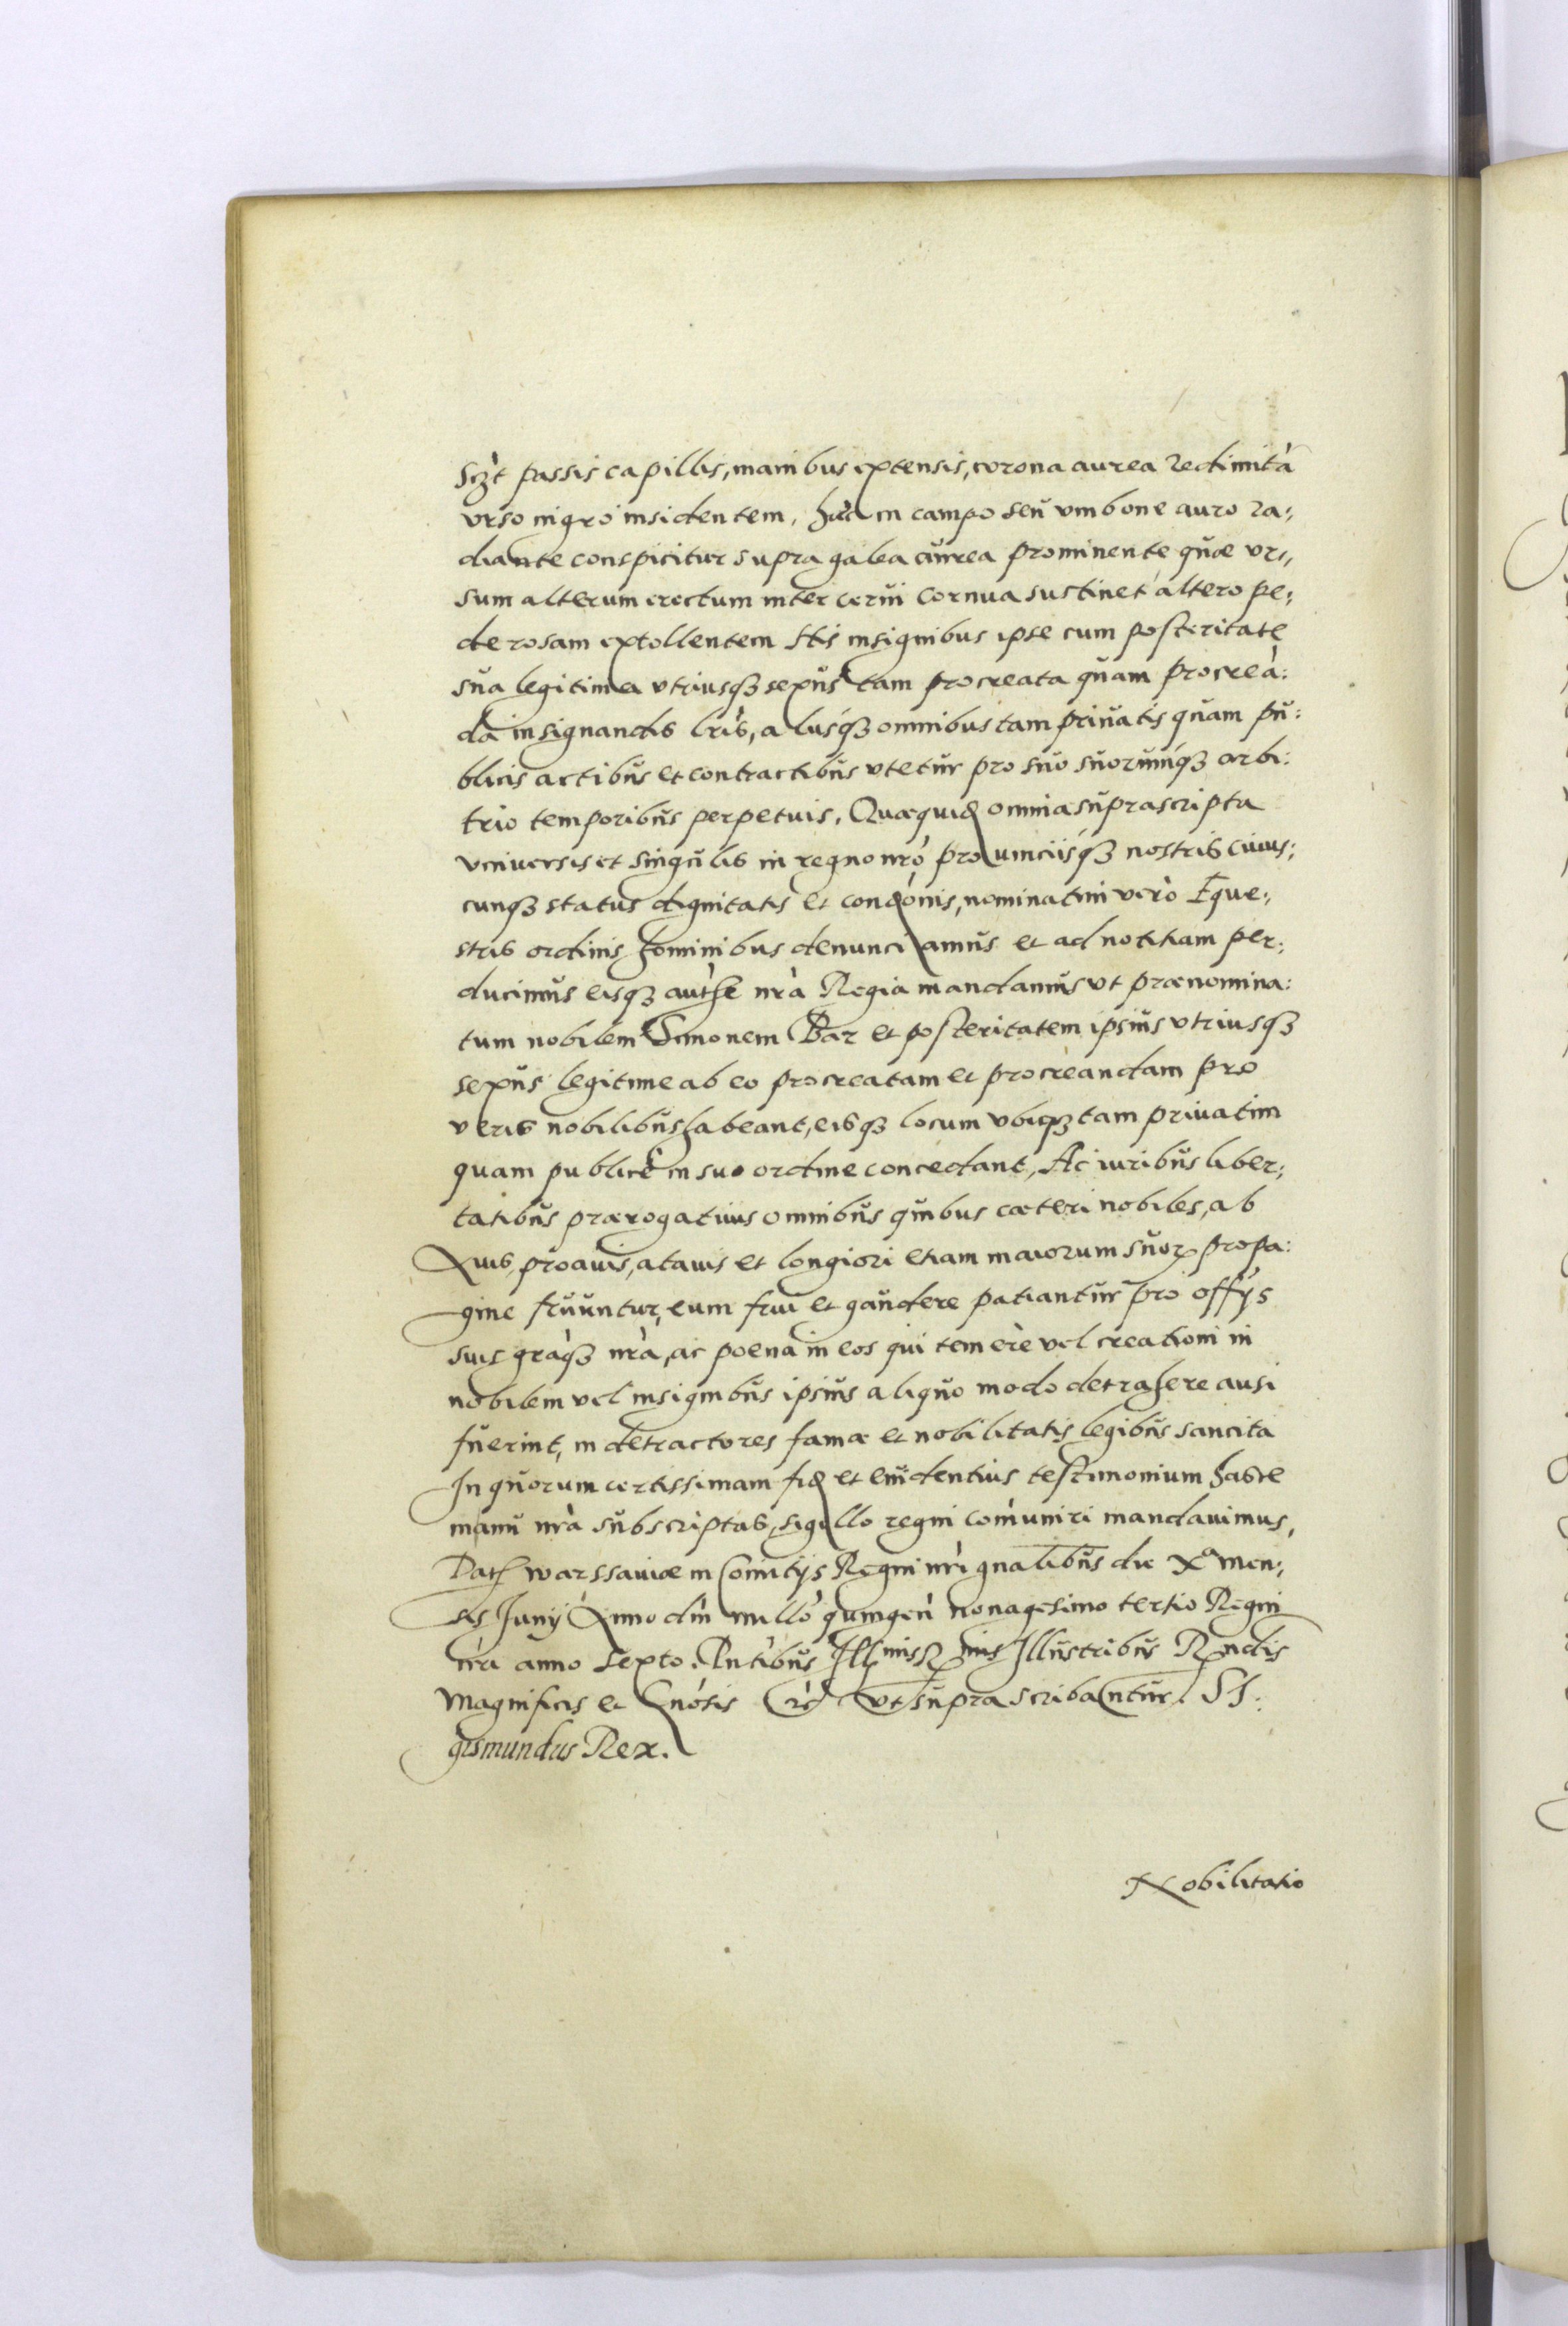 Sczt passis capillis, manibus extensis, corona aurea redimitâ
vrso nigro insidentem, hæc in campo seu vmbone auro ra:
diante conspicitur supra galea aurea prominente quæ vr:
sum alterum erectum inter cerui cornua sustinet altero pe:
de rosam extollentem His insignibus ipse cum posteritate
sua legitima vtriusqȝ sexus tam procreata quam procreà:
dà in signandis lris, aliisqȝ omnibus tam priuatis quam pu:
blicis actibus et contractibus vtetur pro suo suorumqȝ arbi:
trio temporibus perpetuis. Quæquid omnia suprascripta
vniuersis et singulis in regno nrò prouinciisqȝ nostris cuius:
cunqȝ status dignitatis et condonis, nominatim verò Eque:
stris ordinis hominibus denunciamus et ad notitiam per:
ducimus eisqȝ authe nrà Regia mandamus vt prænomina:
tum nobilem Simonem Bar et posteritatem ipsius vtriusqȝ
sexus legitime ab eo procreatam et procreandam pro
veris nobilibus habeant, eisqȝ locum vbiqȝ tam priuatim
quam publicè in suo ordine concedant, Ac iuribus liber:
tatibus prærogatiuis omnibus quibus cæteri nobiles, ab
Auis, proauis, atauis et longiori etiam maiorum suor propa:
gine fruuntur, eum frui et gaudere patiantur pro offijs
suis graqȝ nrà, ac poena in eos qui temerè vel creationi in
nobilem vel insignibus ipsius aliquo modo detrahere ausi
fuerint, in detractores famæ et nobilitatis legibus sancita
In quorum certissimam fid et euidentius testimonium hasce
manu nrà subscriptas, sigillo regni comuniri mandauimus,
Dat warssauiæ in Comitijs Regni nri gnalibus die Xª men:
sis Junij Anno dni millo quingen nonagesimo tertio Regni
nri anno sexto. Pntibus Illmis Rmis Illustribus Rndis
Magnificis et Gnosis etc vt supra scribantur. SI:
gismundus Rex.
Nobilitatio